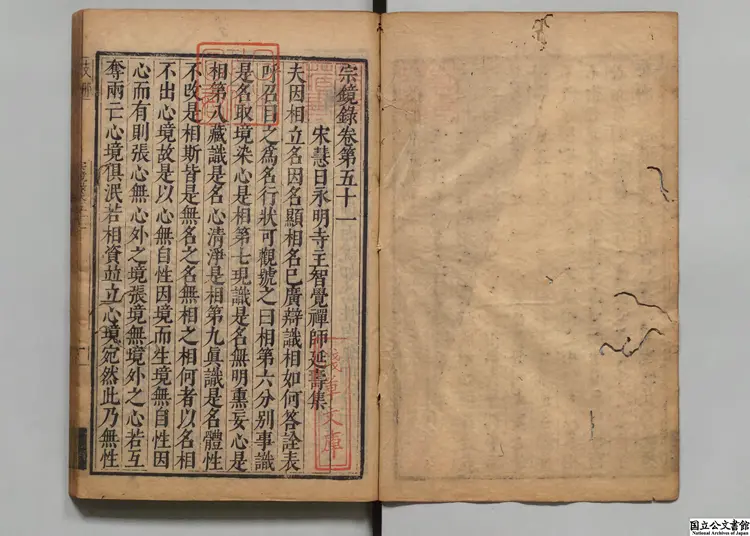 宗鏡錄卷第五十一
宋慧日永明寺主智覺禪師延壽集
夫因相立名因名顯相名已廣辯識相如何答詮表
呼召目之為名行狀可觀號之曰相第六分別事識
是名取境染心是相第七現識是名無明熏妄心是
相第八藏識是名心清淨是相第九眞識是名體性
不改是相斯皆是無名之名無相之相何者以名相
不出心境故是以心無自性因境而生境無自性因
心而有則張心無心外之境張境無境外之心若互
奪兩亡心境俱泯若相資並立心境宛然此乃無性
淺草文庫
国立公文書館
National Archives of Japan